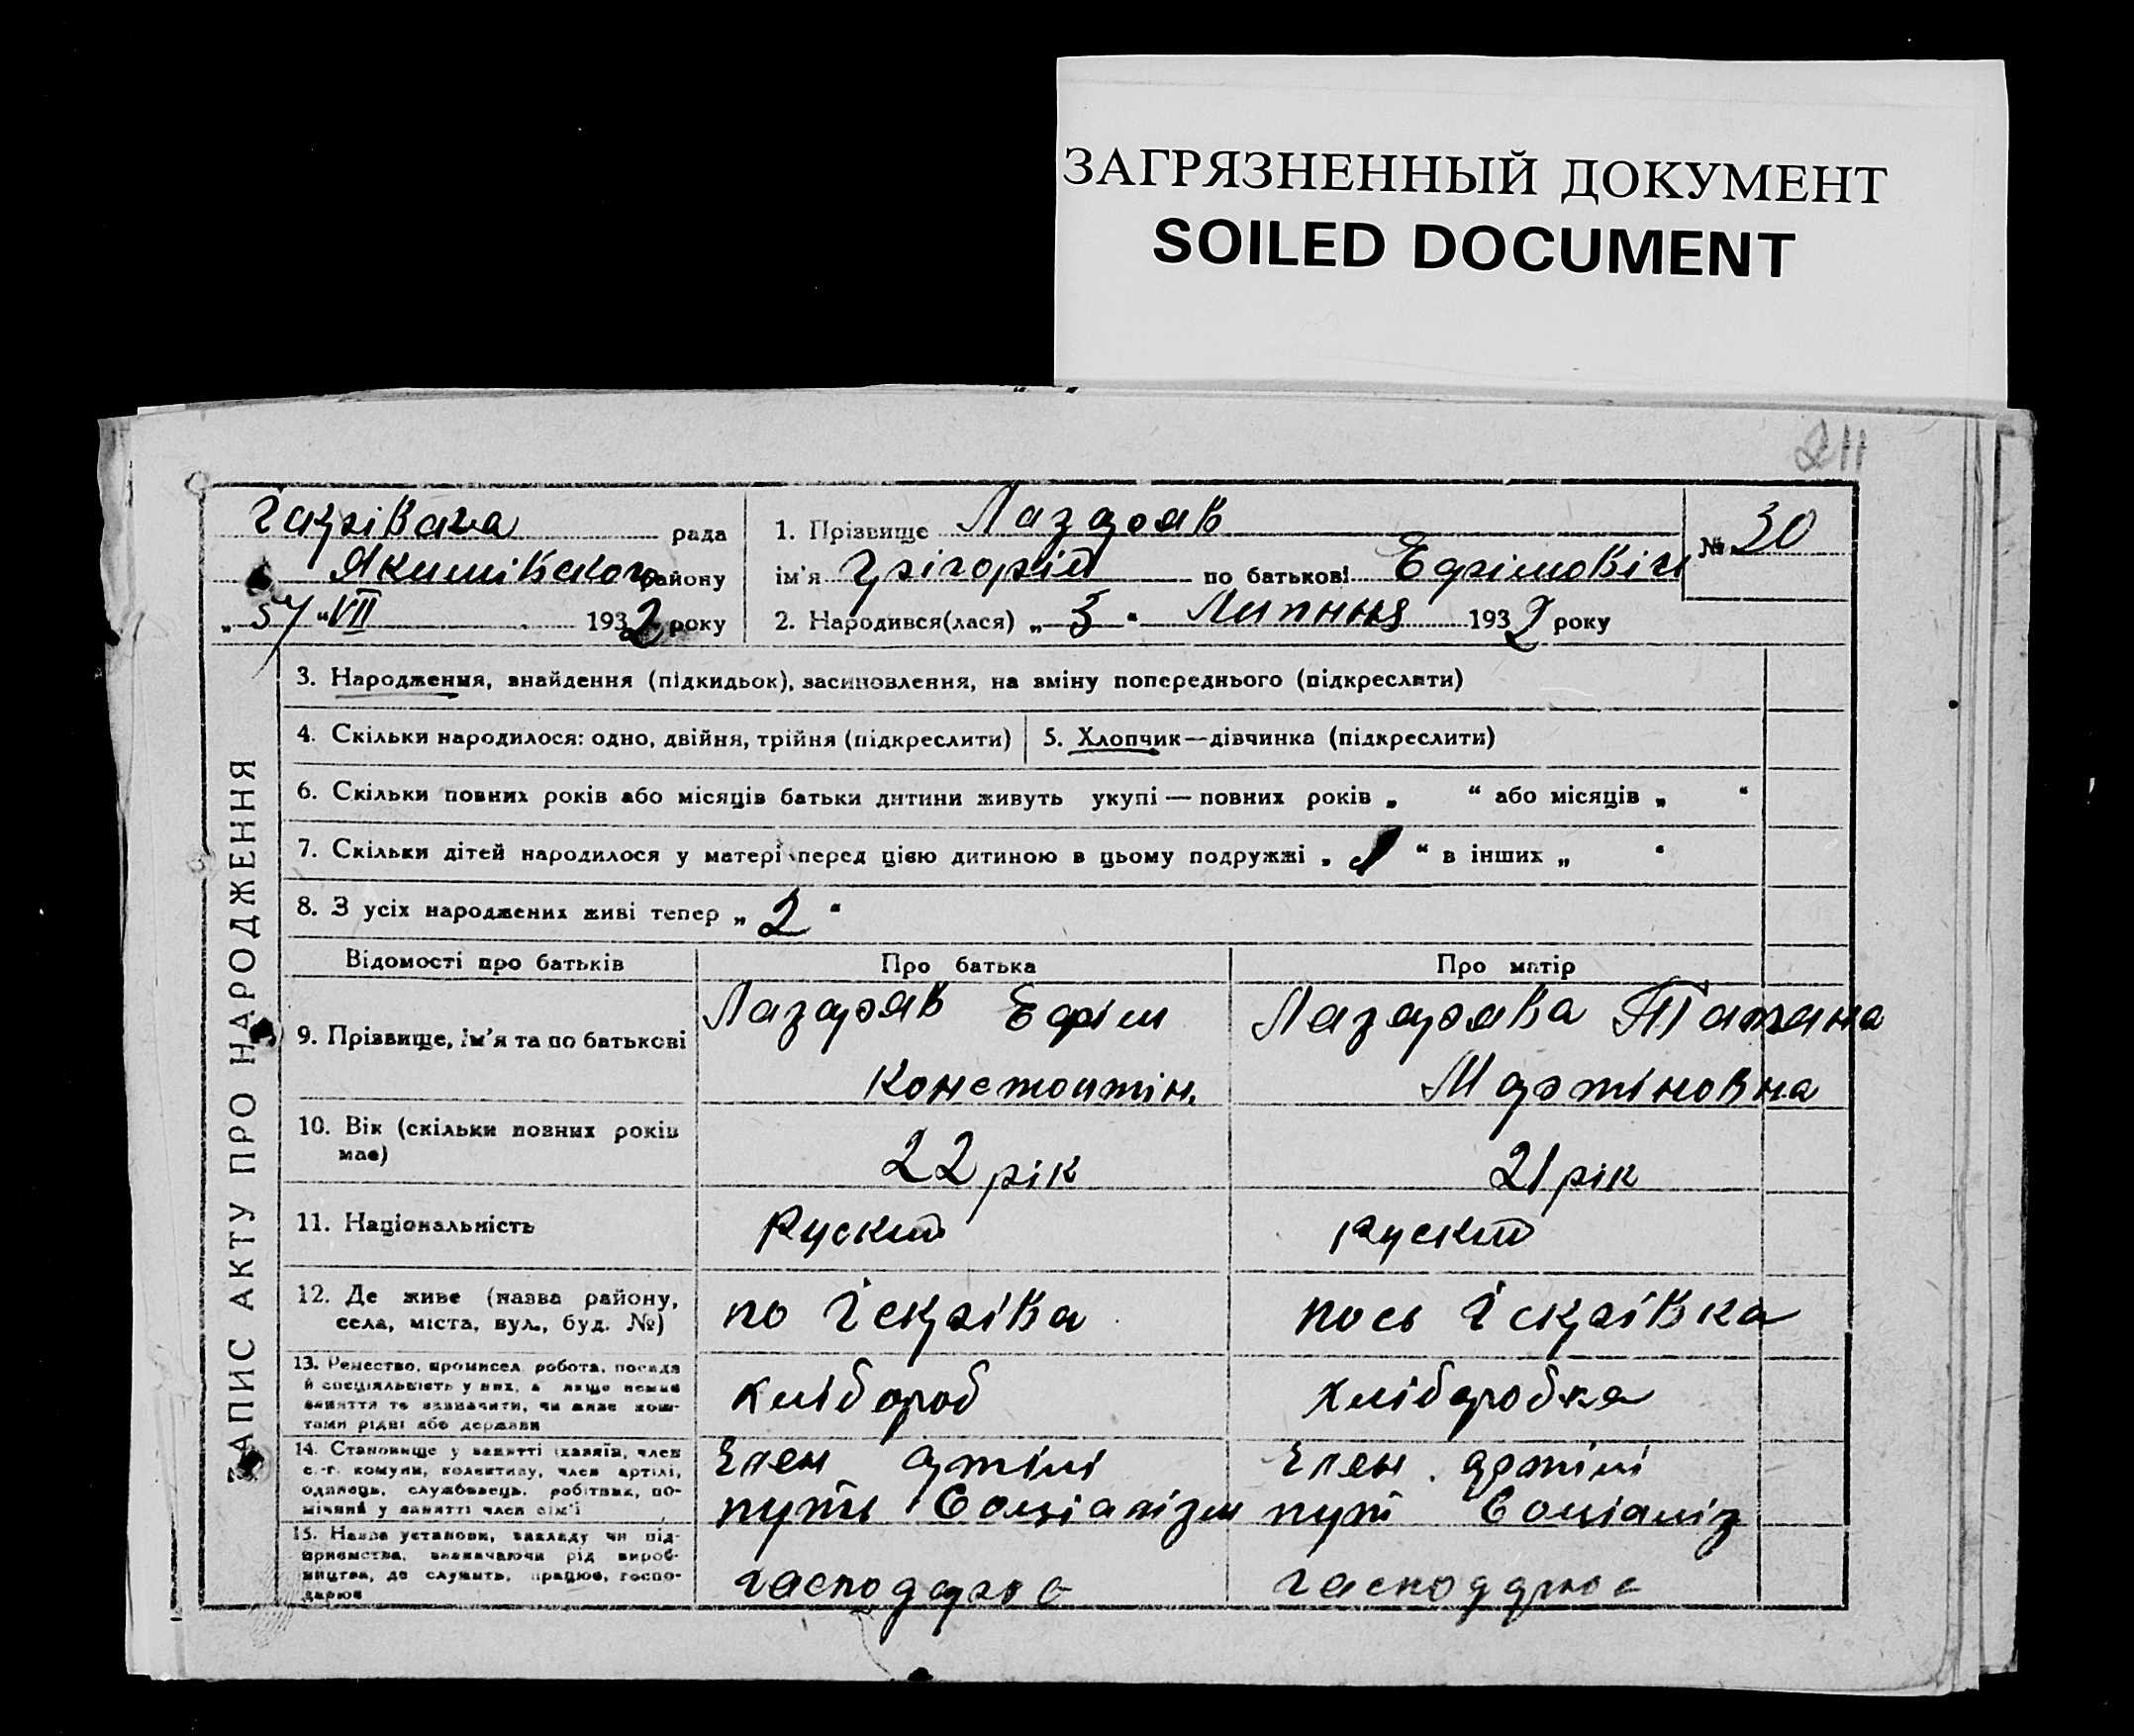 ЗАГРЯЗНЕННЫЙ ДОКУМЕНТ
SOILED DOCUMENT
211
рада
Якимівского району
„ “ VII 1932 року
1. Прізвище Лазарав
ім'я Грігорій по батькові Ефімовіч
№ 30
2. Народився(лася) „ 3 “ Липння 1932 року
ЗАПИС АКТУ ПРО НАРОДЖЕННЯ
3. Народження, знайдення (підкидьок), засиновлення, на зміну попереднього (підкреслити)
4. Скільки народилося: одно, двійня, трійня (підкреслити)
5. Хлопчик—дівчинка (підкреслити)
6. Скільки повних років або місяців батьки дитини живуть укупі — повних років „ “ або місяців „ “
7. Скільки дітей народилося у матері перед цією дитиною в цьому подружжі „ 1 “ в інших „ “
8. З усіх народжених живі тепер „ 2 “
Відомості про батьків
Про батька
Про матір
9. Прізвище, ім'я та по батькові
Лазарав Ефім
Константін.
Лазарава Татана
Мартіновна
10. Вік (скільки повних років має)
22 рік
21 рік
11. Національність
Руский
руский
12. Де живе (назва району,
села, міста, вул., буд. №)
по Іскрівка
пось Іскрівка
13. Ремество, промисел, робота, посада
й спеціяльність у них, а якщо немає
заняття то зазначити, чи живе кош-
тами рідні або держави
хлібороб
хлібаробка
14. Становище у занятті (хазяїн, член
с.-г. комуни, колективу, член артілі,
одинець, службовець, робітник, по-
мічний у занятті член сім'ї
Член артілі
путь Соціалізм
Член артілі
путі Соціаліз
15. Назва установи, закладу чи під-
приємства, зазначаючи рід вироб-
ництва, де служить, працює, госпо-
дарює
гасподарює
гасподарює